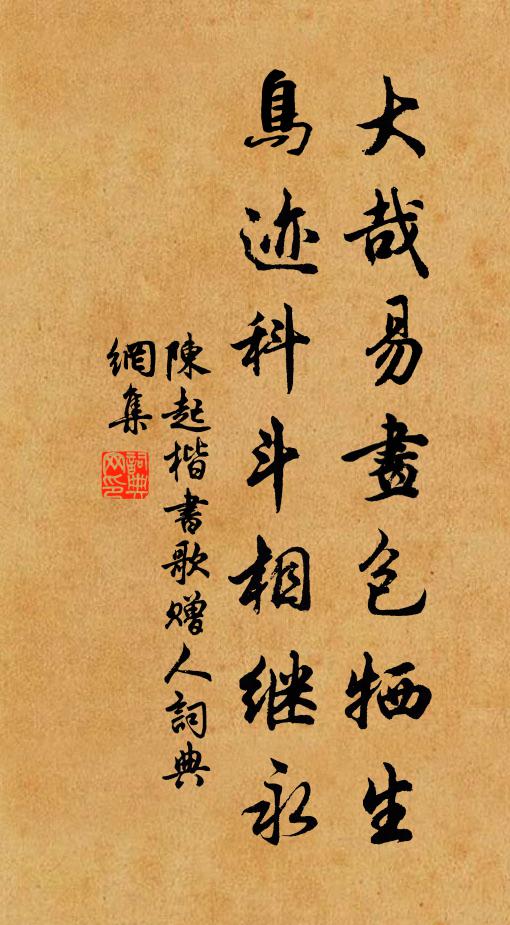 大哉易畫包牺生
鳥迹科斗相继永
陳起楷書歌贈人詞典
網集
詞典
网印